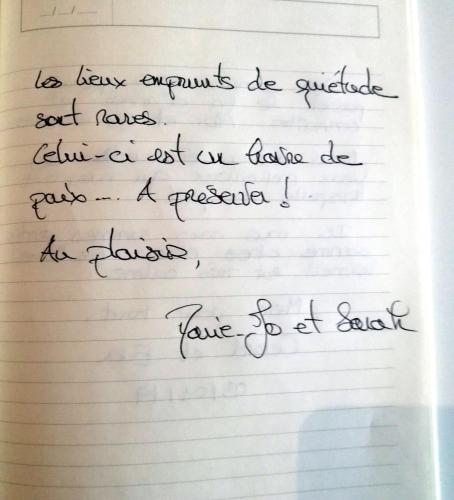 Les lieux emprunts de quiétude
sont rares.
Celui-ci est un havre de
paix... A préserver !
Au plaisir,
Marie-Jo et Sarah